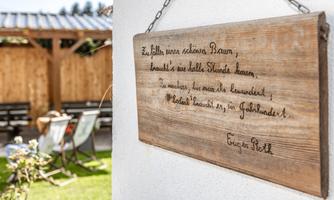 Zu fällen einen schönen Baum,
braucht's eine halbe Stunde kaum.
Zu wachsen, bis man ihn bewundert,
braucht er, ein Jahrhundert.
Eugen Roth